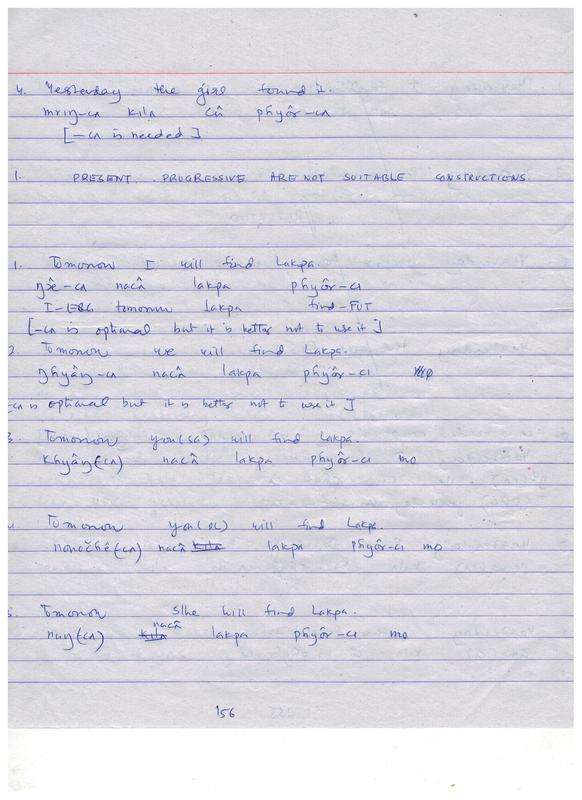 4. Yesterday the girl found it.
mriŋ-cʌ kilʌ cû phyôr-cʌ
[-cʌ is needed]
1. PRESENT PROGRESSIVE ARE NOT SUITABLE CONSTRUCTIONS.
1. Tomorrow I will find Lakpa.
ŋxê-cʌ nacâ lakpa pɦyôr-cı
I-ERG tomorrow Lakpa find-FUT
[-cʌ is optional but it is better not to use it]
2. Tomorrow we will find Lakpa.
ŋɦyâŋ-cʌ nacâ lakpa pɦyôr-cı
-cʌ is optional but it is better not to use it]
3. Tomorrow you(SG) will find Lakpa.
kɦyâŋ(cʌ) nacâ lakpa pɦyôr-cı mo
Tomorrow you(PL) will find Lakpa.
nacâ lakpa pɦyôr-cı mo
Tomorrow S/he will find Lakpa.
nacâ
(cʌ) kilʌ lakpa pɦyôr-cı mo
156